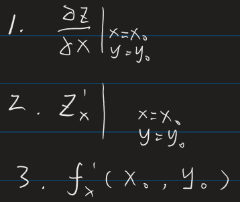 1. ∂z/∂x | x=x₀ y=y₀
2. z'ₓ | x=x₀ y=y₀
3. f'ₓ(x₀, y₀)